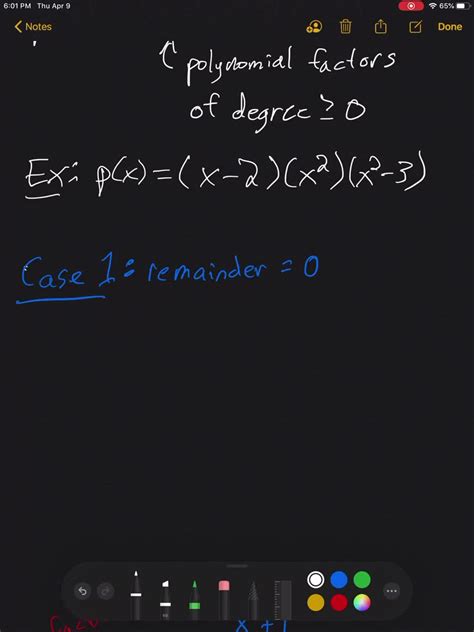 6:01 PM Thu Apr 9
65%
Notes
Done
polynomial factors
of degree ≥ 0
Ex: p(x) = (x-2)(x²)(x²-3)
Case 1: remainder = 0
x + 1